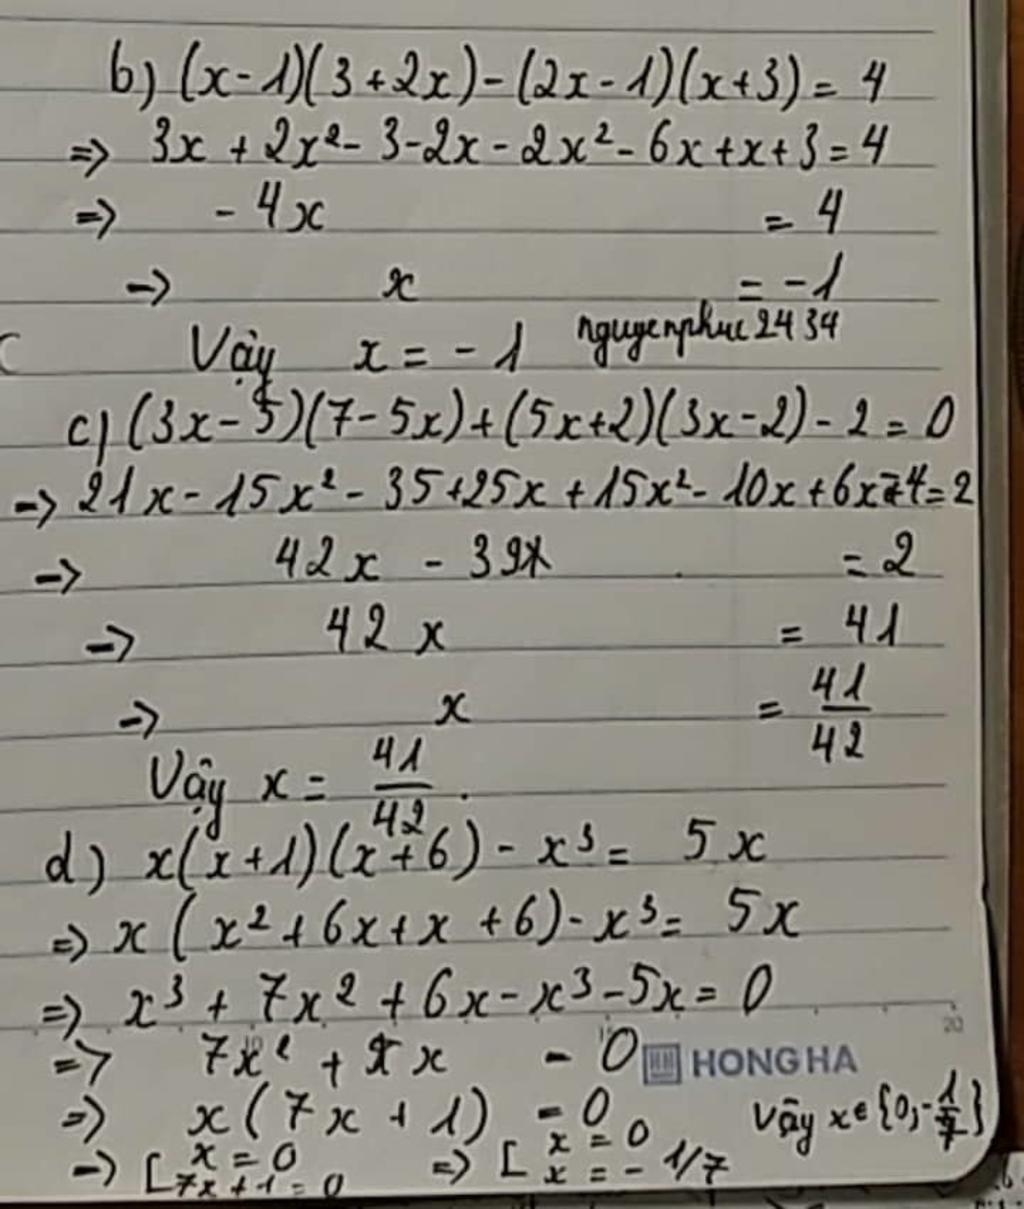 b) (x-1)(3+2x)-(2x-1)(x+3)= 4
=> 3x + 2x² - 3-2x - 2x² - 6x+x+3=4
=> - 4x = 4
-> x = -1
Vậy x = - 1 nguyenphuc2434
c) (3x-5)(7-5x)+(5x+2)(3x-2)-2=0
-> 21x-15x²-35+25x+15x²-10x+6x-4=2
-> 42x - 39 = 2
-> 42x = 41
-> x = 41/42
Vậy x = 41/42.
d) x(x+1)(x+6)-x³= 5x
=> x(x²+6x+x+6)-x³= 5x
=> x³ + 7x² + 6x-x³-5x= 0
20
=> 7x² + x - 0
HONG HA
=> x(7x + 1) - 0 Vậy x∈{0;-1/7}
-> [x = 0 => [x = 0
7x+1=0 x = - 1/7